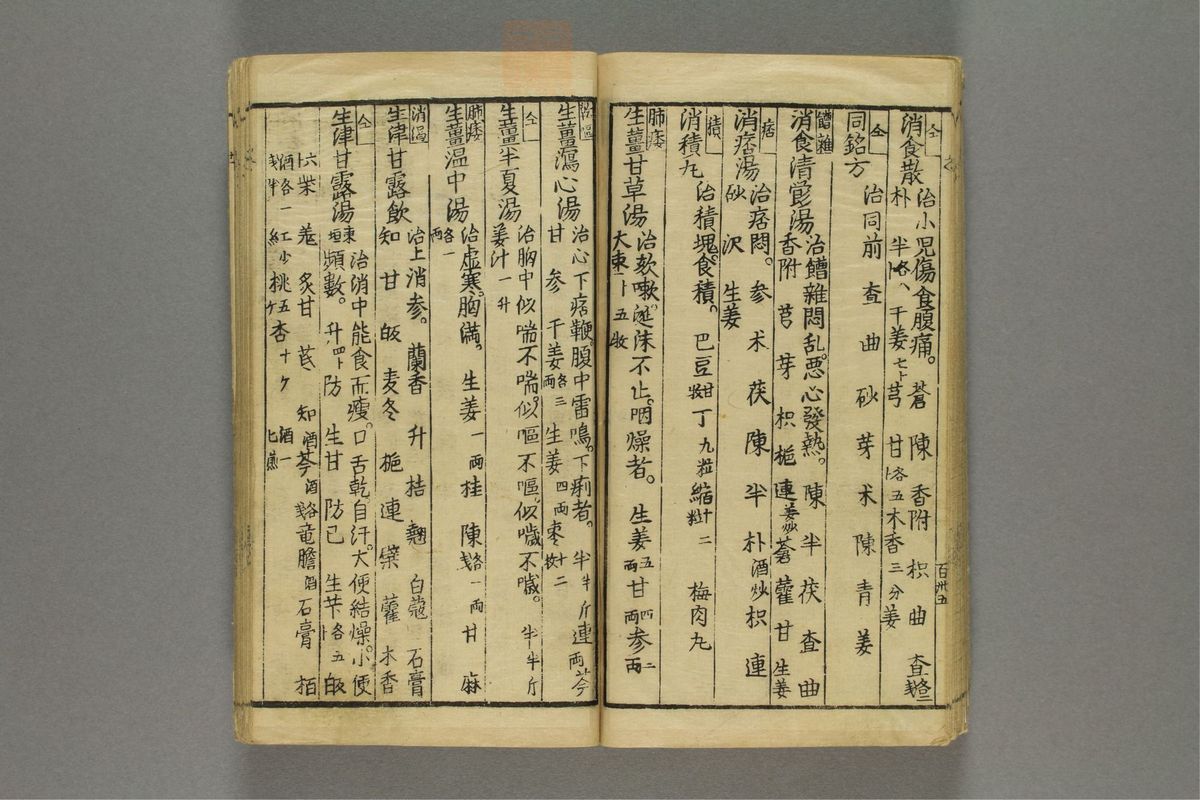 仝
消食散
治小児傷食腹痛。蒼 陳 香附 枳 曲 查各二戔
朴 半各八卜 干姜七卜 芎 甘各五卜 木香三分 姜
仝
同銘方
治同前 查 曲 砂 芽 术 陳 青 姜
饐雜
消食清鬱湯
治饐雜悶乱。悪心發熱。陳 半 茯 查 曲
香附 芎 芽 枳 梔 連姜炒 蒼 藿 甘 生姜
痞
消痞湯
治痞悶。参 术 茯 陳 半 朴 酒炒 枳 連
砂 沢 生姜
積
消積丸
治積塊。食積。 巴豆 丁九粒 縮十二粒 梅肉丸
肺痿
生薑甘草湯
治欬嗽。涎沫不止。咽燥者。 生姜五両 甘四両 参二両
大枣十五枚
百卅五
生薑瀉心湯
治心下痞鞕。腹中雷鳴。下痢者。 半半斤 連両 芩
甘 参 干姜各三両 生姜四両 枣十二枚
仝
生薑半夏湯
治胸中似喘不喘。似嘔不嘔。似噦不噦。 半半斤
姜汁一升
肺痿
生薑温中湯
治虚寒。胸満。 生姜一両 桂 陳各一戔 一両 甘 麻
各一両
消渇
生津甘露飲
治上消参。蘭香 升 桔 翹 白蔻 石膏
知 甘 皈 麦冬 梔 連 檗 藿 木香
仝
生津甘露湯
東垣
治消中能食而瘦。口舌乾。自汗。大便結燥。小便
頻數。升四卜 防 生甘 防己 生芐各五卜 皈
六卜 柴 羗 炙甘 芪 知 酒芩酒各戔 竜膽酒 石膏 栢
酒各一戔半 紅少 桃五ケ 杏十ケ 酒一匕煎